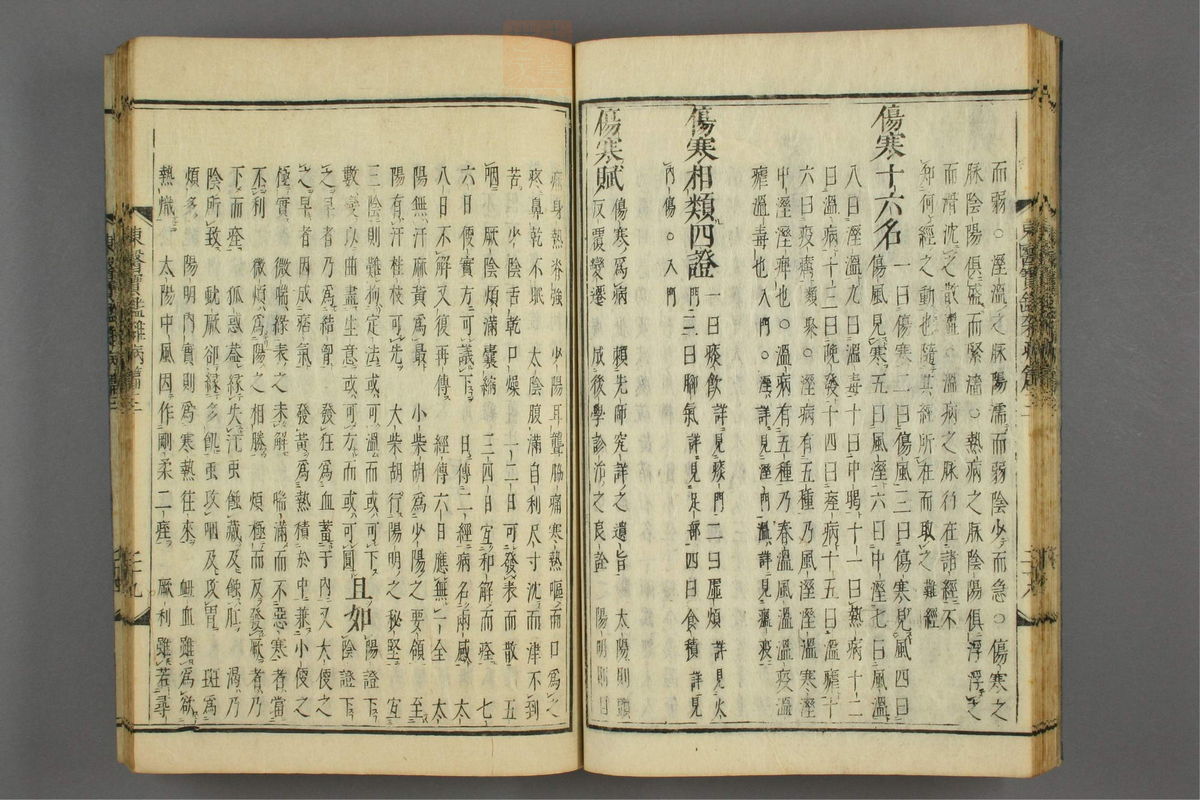 而弱○溼溫之脉陽濡而弱陰少而急○傷寒之
脉陰陽俱盛而緊濇○熱病之脉陰陽俱浮浮之
而滑沈之散濇○溫病之脉行在諸經不
知何經之動也隨其經所在而取之難經
傷寒十六名 一曰傷寒二曰傷風三曰傷寒見風四曰
傷風見寒五曰風溼六曰中溼七曰風溫
八曰溼溫九曰溫毒十曰中暍十一曰熱病十二
曰溫病十三曰晚發十四曰痓病十五曰溫瘧十
六曰疫癘類聚○溼病有五種乃風溼溼溫寒溼
中溼溼痺也○溫病有五種乃春溫風溫溫疫溫
瘧溫毒也入門○溼詳見溼門溫詳見瘟疫
傷寒相類四證 一曰痰飲詳見痰門二曰虛煩詳見火
門三曰脚氣詳見足部四曰食積詳見
內傷○入門
傷寒賦 傷寒爲病 賴先師究詳之遺旨 太陽則頭
反覆變遷 成後學診治之良詮 陽明則目
疼身熱脊強 少陽耳聾脇痛寒熱嘔而口爲之
疼鼻乾不眠 太陰腹滿自利尺寸沈而津不到
苦 少陰舌乾口燥 一二日可發表而散 五
咽 厥陰煩滿囊縮 三四日宜和解而痊 七
六日便實方可議下 日傳二經病名兩感 太
八日不解又復再傳 經傳六日應無一全 太
陽無汗麻黃爲最 小柴胡爲少陽之要領 至
陽有汗桂枝可先 大柴胡行陽明之秘堅 宜
三陰則難拘定法或可溫而或可下 且如 陽證下
數變以曲盡生意或可方而或可圓 陰證下
之早者乃爲結胷 發狂爲血蓄于內又大便之
之早者因成痞氣 發黃爲熱積於中兼小便之
極實 微喘緣表未解 喘滿而不惡寒者當
不利 微煩爲陽之相勝 煩極而反發厥者乃
下而痊 狐惑蓋緣失汗蟲蝕藏及蝕肛 渴乃
陰所致 蚘厥卻緣多飢蟲攻咽及攻胃 斑爲
煩多 陽明內實則爲寒熱往來 衄血雖爲欲
熱熾 太陽中風因作剛柔二痓 厥利雖若尋
東醫寶鑑雜病篇
東醫寶鑑雜病篇三